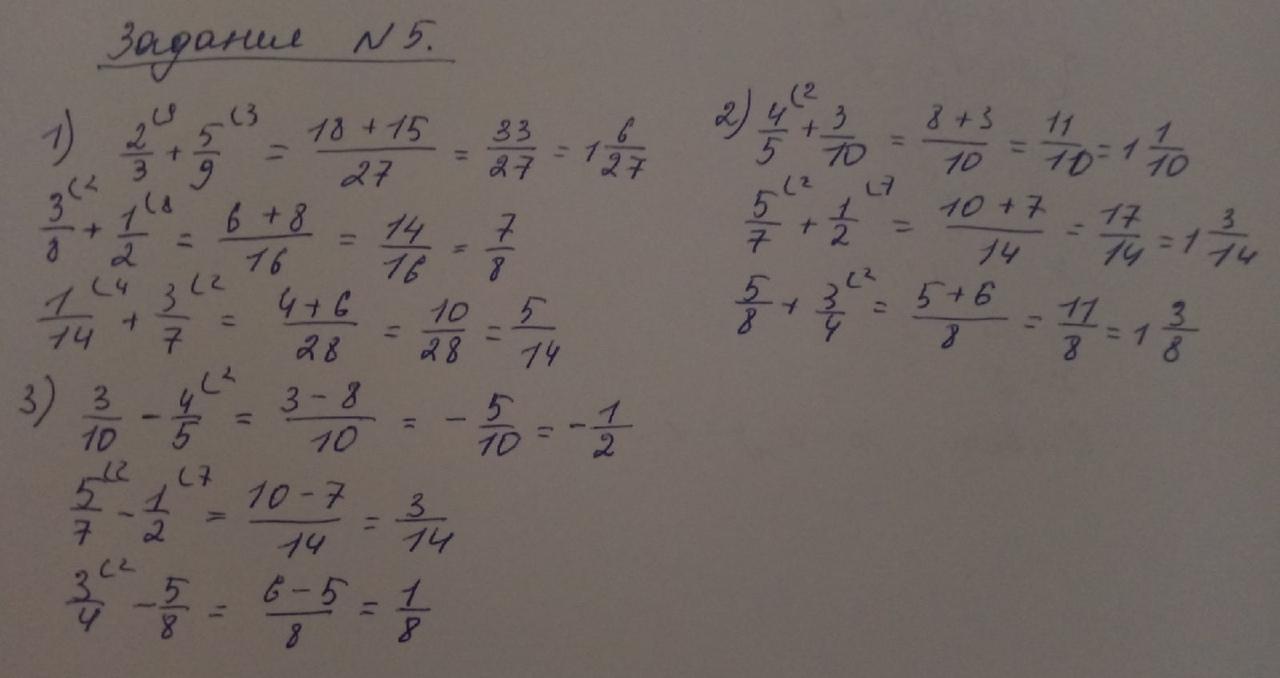 Задания N 5.
1) 2/3 (9 + 5/9 (3 = (18 + 15)/27 = 33/27 = 1 6/27
3/8 (2 + 1/2 (8 = (6 + 8)/16 = 14/16 = 7/8
1/14 (4 + 3/7 (2 = (4 + 6)/28 = 10/28 = 5/14
2) 4/5 (2 + 3/10 = (8 + 3)/10 = 11/10 = 1 1/10
5/7 (2 + 1/2 (7 = (10 + 7)/14 = 17/14 = 1 3/14
5/8 + 3/4 (2 = (5 + 6)/8 = 11/8 = 1 3/8
3) 3/10 - 4/5 (2 = (3 - 8)/10 = - 5/10 = - 1/2
5/7 (2 - 1/2 (7 = (10 - 7)/14 = 3/14
3/4 (2 - 5/8 = (6 - 5)/8 = 1/8